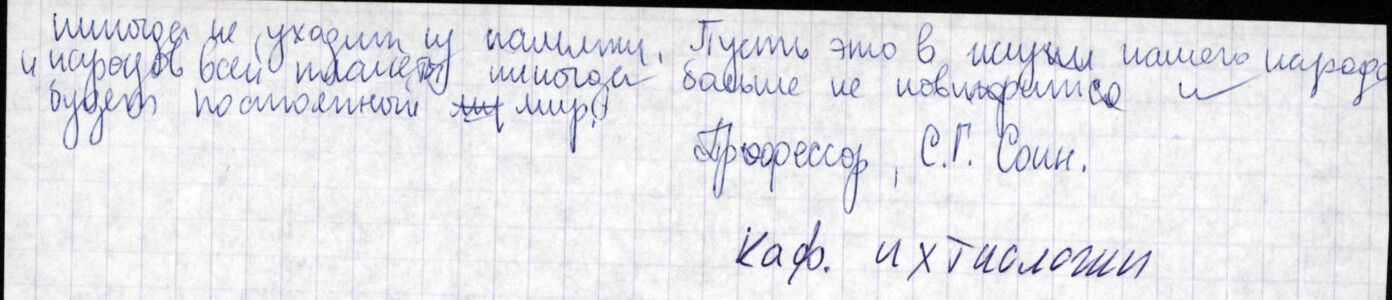 никогда не уходит из памяти. Пусть это в жизни нашего народа
и народов всей планеты никогда больше не повторится и
будет постоянный мир!
Профессор, С.Г. Соин.
Каф. ихтиологии